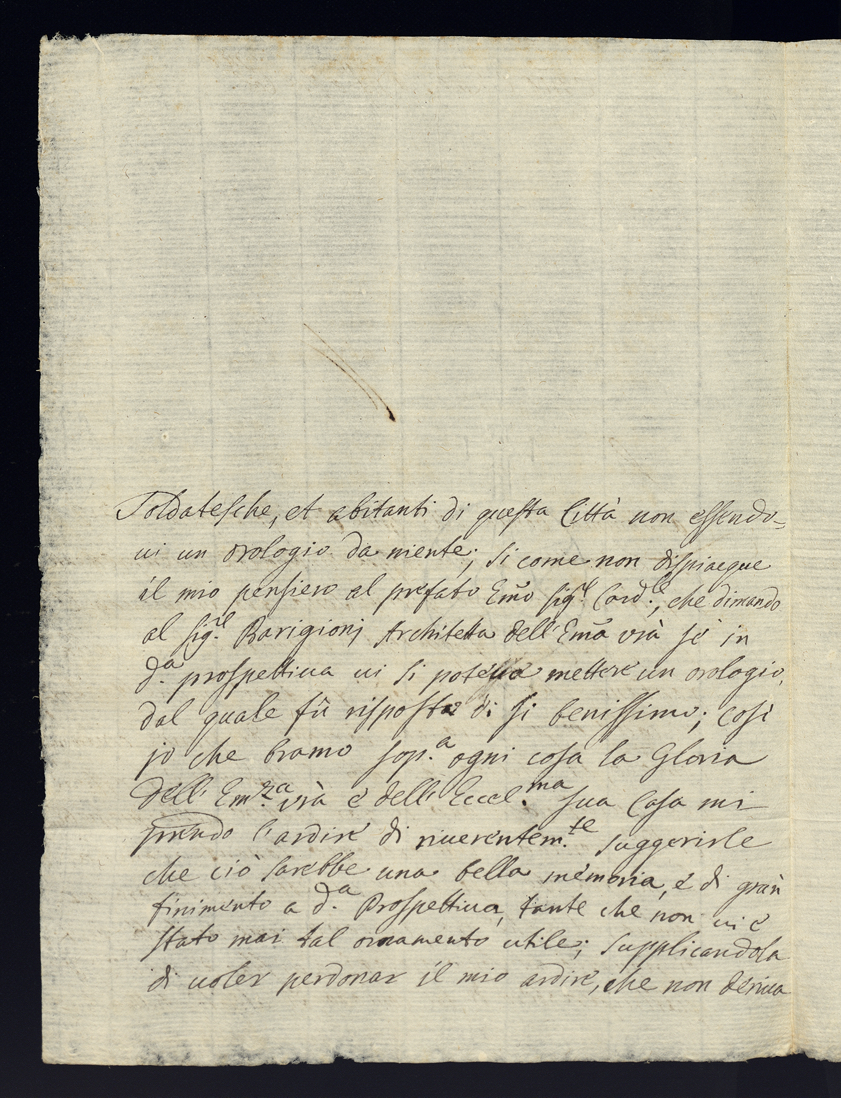 Soldatesche, et abitanti di questa Città non essendo-
ui un orologio da niente; si come non dispiacque
il mio pensiero al prefato Emo̅ Sigl Cardle, che dimandò
al Sigre Barigioni Architetto dell'Ema̅ vrà se in
da prospettiua ui si potesse mettere un orologio,
dal quale fù risposto di si benissimo; così
io che bramo sopa ogni cosa la Gloria
dell'Emza vrà e dell'Eccelma sua Casa mi
prendo l'ardire di riuerentemte suggerirle
che ciò sarebbe una bella memoria, e di gran
finimento a da Prospettiua, tante che non ui è
stato mai tal ornamento utile; supplicandola
di uoler perdonar il mio ardire, che non deriua